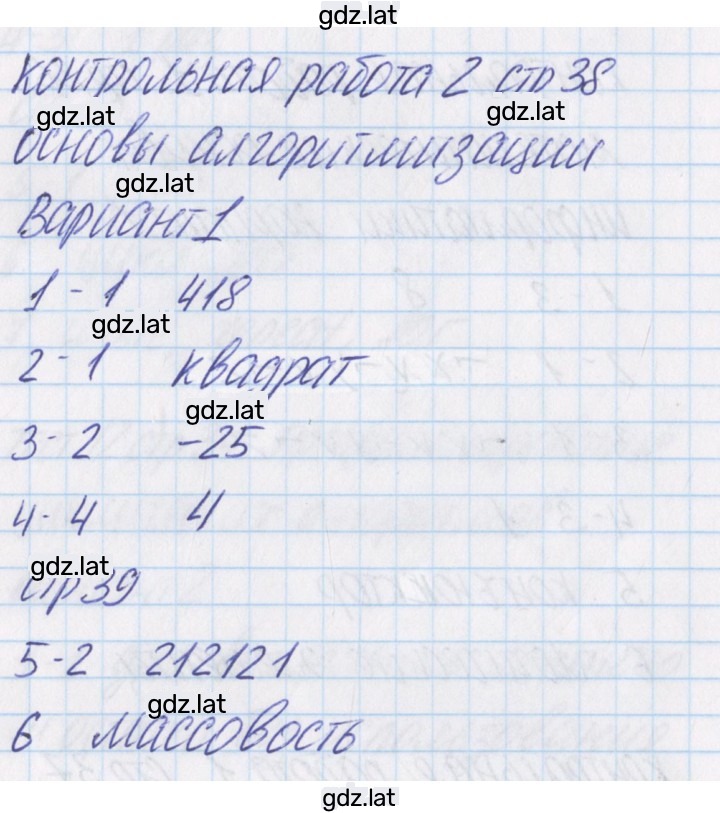 gdz.lat
контрольная работа 2 стр 38
gdz.lat
gdz.lat
основы алгоритмизации
gdz.lat
Вариант 1
1 - 1 418
gdz.lat
2 - 1 квадрат
gdz.lat
3 - 2 -25
4 - 4 4
gdz.lat
стр 39
5 - 2 212121
gdz.lat
6 массовость
gdz.lat